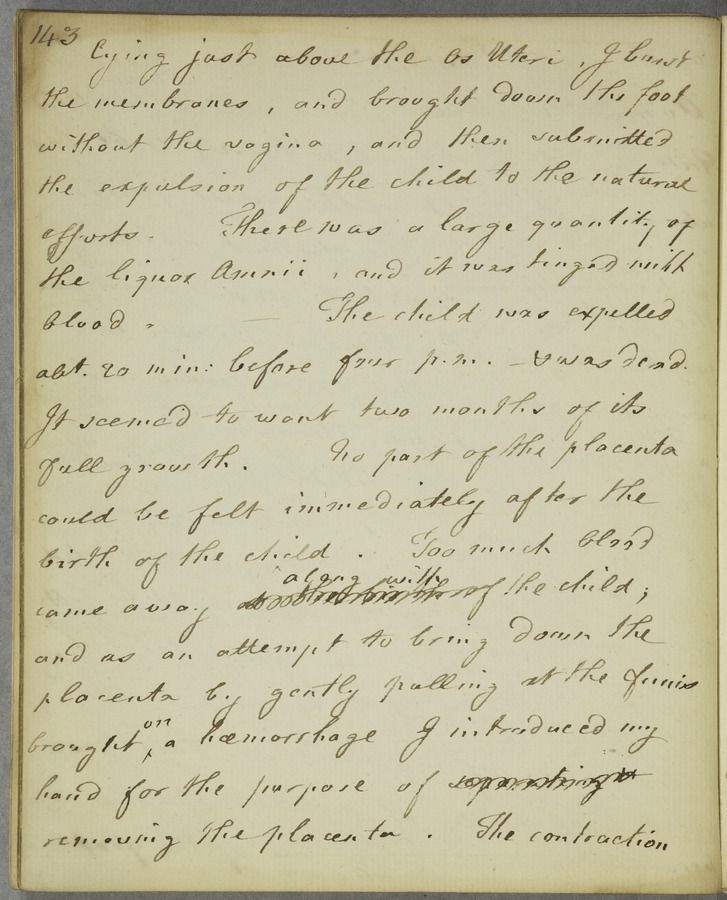 143
lying just above the Os Uteri, I burst
the membranes, and brought down the foot
without the vagina, and then submitted
the expulsion of the child to the natural
efforts. There was a large quantity of
the liquor Amnii, and it was tinged with
blood. — The child was expelled
abt. 20 min: before four p.m. — & was dead.
It seemed to want two months of its
full growth. No part of the placenta
could be felt immediately after the
birth of the child. Too much blood
along with
came away the child;
and as an attempt to bring down the
placenta by gently pulling at the funis
on
brought ‸ a hæmorrhage I introduced my
hand for the purpose of
removing the placenta. The contraction